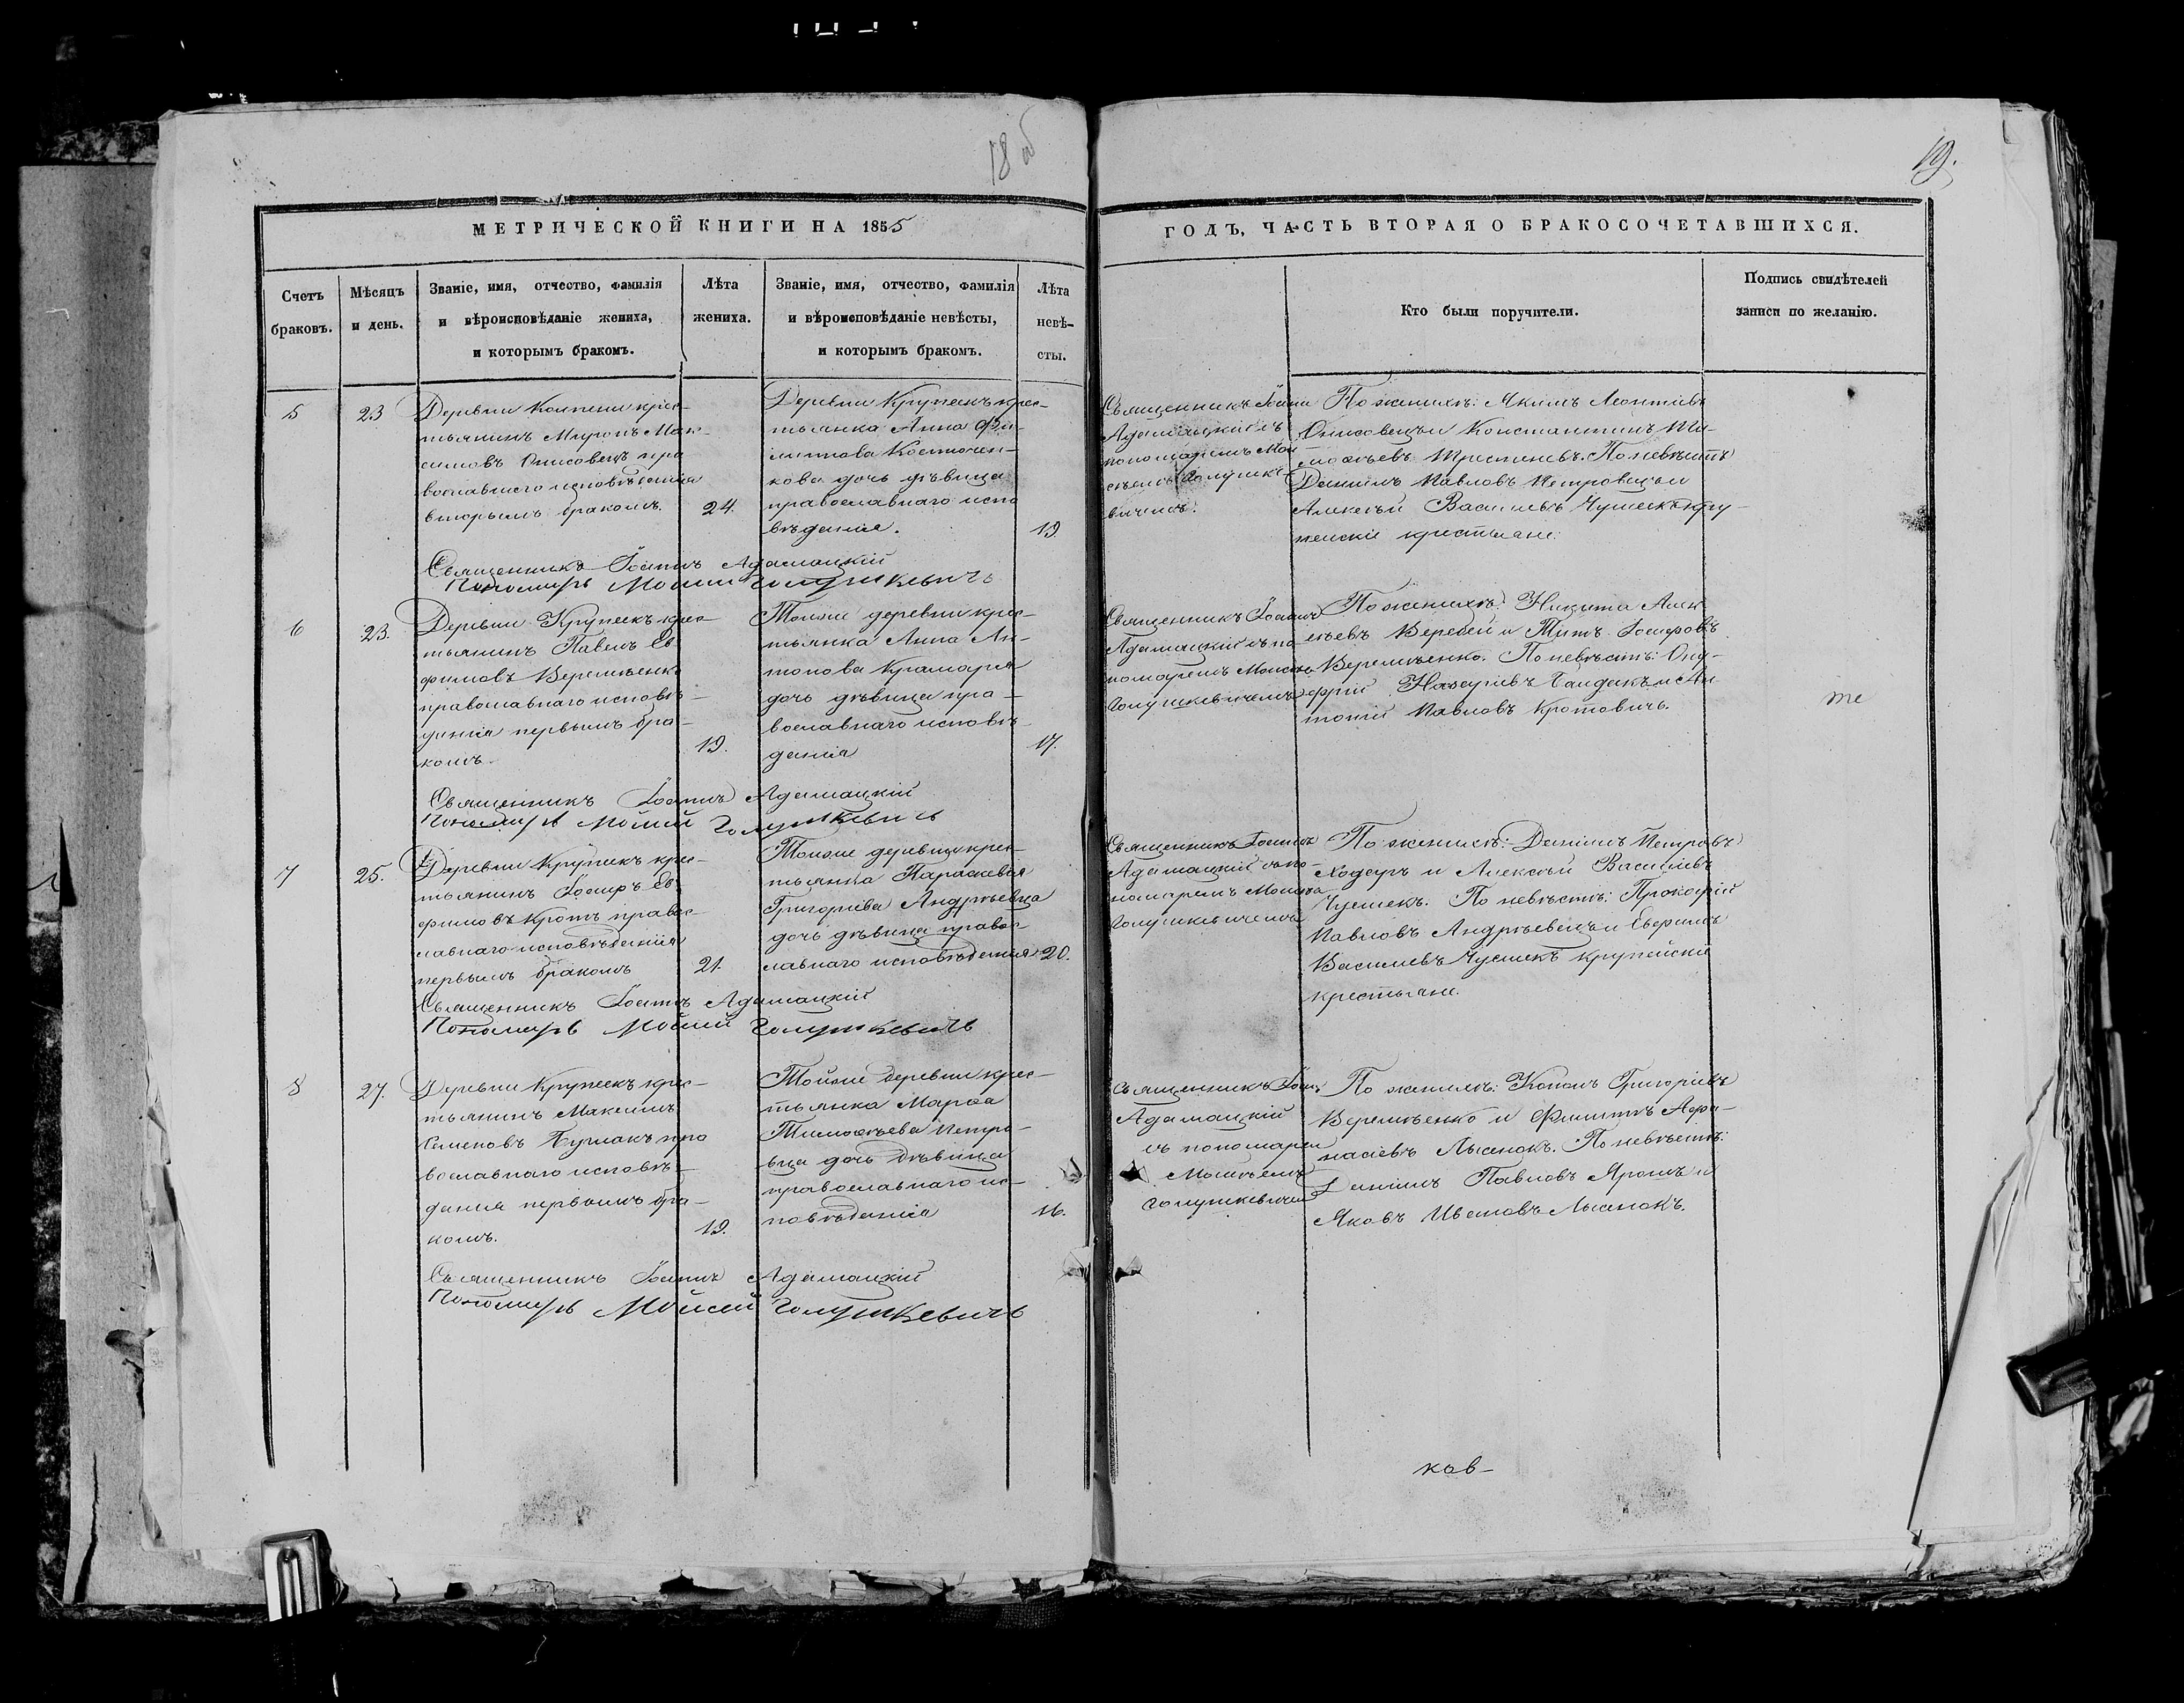 18 об
19.
МЕТРИЧЕСКОЙ КНИГИ НА 1855
ГОДЪ, ЧАСТЬ ВТОРАЯ О БРАКОСОЧЕТАВШИХСЯ.
Счетъ
браковъ.
Мѣсяцъ
и день.
Званіе, имя, отчество, фамилія
и вѣроисповѣданіе жениха,
и которымъ бракомъ.
Лѣта
жениха.
Званіе, имя, отчество, фамилія
и вѣроисповѣданіе невѣсты,
и которымъ бракомъ.
Лѣта
невѣ-
сты.
Кто были поручители.
Подпись свидѣтелей
записи по желанію.
5
23
Деревни крес-
тьянинъ Миронъ Мак-
симовъ Онисовецъ пра
вославнаго исповѣданія
вторымъ бракомъ.
24.
Деревни Крупекъ крес-
тьянка Анна Фи-
липпова Костючен-
кова дочь дѣвица
православнаго испо
вѣданія.
19.
Священникъ Іоаннъ
Адамацкій съ
пономаремъ Мои
сѣемъ Голушке
вичемъ.
По женихѣ: Якимъ Леонтіевъ
Онисовецъ и Константинъ Ти-
моѳѣевъ. По невѣстѣ
Даніилъ Павловъ Петровецъ и
Алексѣй Васильевъ Чушекъ кру-
пейскіе крестьяне.
Священникъ Іоаннъ Адамацкій
Пономарь Моисей Голушкевичъ
6
23.
Деревни Крупекъ крес-
тьянинъ Павелъ Ев
фимовъ Веремѣенко
православнаго исповѣ-
данія первымъ бра-
комъ.
19.
Тойже деревни крес-
тьянка Анна Ан-
тонова Крамарева
дочь дѣвица пра-
вославнаго исповѣ-
данія
17.
Священникъ Іоаннъ
Адамацкій съ по-
номаремъ Моисѣемъ
Голушкевичемъ
По женихѣ: Никита Алек
сѣевъ Веребей и Титъ Іосифовъ
Веремѣенко. По невѣстѣ: Ону-
фрій Назаріевъ Гайдакъ и Ан
тоній Павловъ Кротовичъ.
те
Священникъ Іоаннъ Адамацкій
Пономарь Моисей Голушкевичъ
7
25.
Деревни Крупекъ крес-
тьянинъ Іосифъ Ев-
фимовъ Кротъ правос-
лавнаго исповѣданія
первымъ бракомъ
21.
Тойже деревни крес-
тьянка Параскевія
Григоріева Андрѣевца
дочь дѣвица правос-
лавнаго исповѣданія
20.
Священникъ Іоаннъ
Адамацкій съ по-
номаремъ Моисѣемъ
Голушкевичемъ
По женихѣ: Даніилъ Петровъ
Ходаръ и Алексѣй Васильевъ
Чушекъ. По невѣстѣ: Прокофій
Павловъ Андрѣевецъ и Евфимъ
Васильевъ Чушекъ крупейскіе
крестьяне.
Священникъ Іоаннъ Адамацкій
Пономарь Моисей Голушкевичъ
8
27.
Деревни Крупекъ крес-
тьянинъ Максимъ
Семеновъ пра
вославнаго исповѣ-
данія первымъ бра-
комъ.
19.
Тойже деревни крес-
тьянка Марѳа
Тимоѳѣева Петро-
вца дочь дѣвица
православнаго ис-
повѣданія
16.
Священникъ Іоан
Адамацкій
съ пономарем
Моисѣемъ
Голушкевичем
По женихѣ: Кононъ Григоріевъ
Веремѣенко и Филиппъ Афа-
насіевъ Лысенокъ. По невѣстѣ:
Даніилъ Павловъ Ярошъ и
Яковъ Ивановъ Лысенокъ.
Священникъ Іоаннъ Адамацкій
Пономарь Моисей Голушкевичъ
ков-